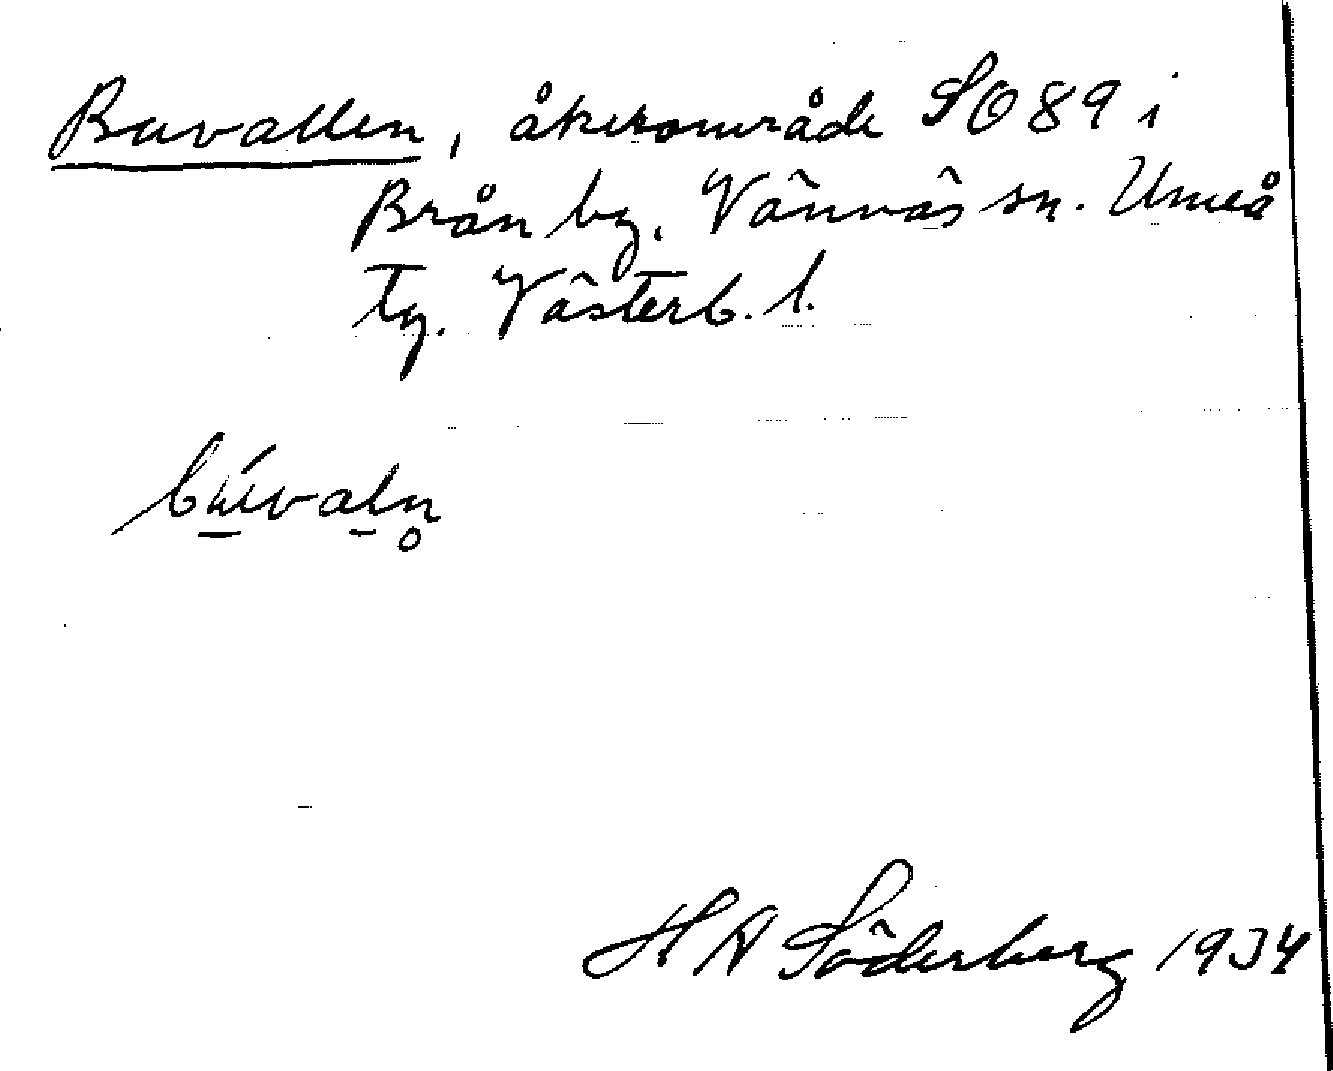 Buvallen, åkerområde SO 89 i
Brån by. Vännäs sn. Umeå
tg. Västerb. l.
bú̲val̲n̥
H A Söderberg 1934